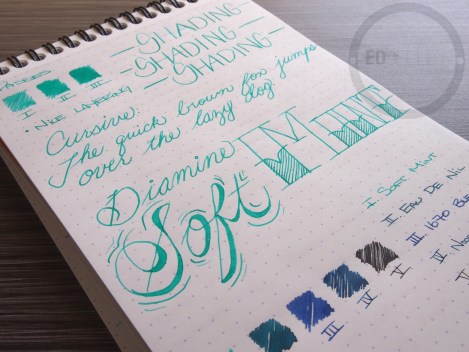 -SHADING-
-SHADING-
-SHADING-
I II III
• NICE LAYERING
Cursive:
The quick brown fox jumps
over the lazy dog.
Diamine
Soft MINT
I. SOFT MINT
II. EAU DE NIL
III. 1670
IV
V
II III IV V
ED